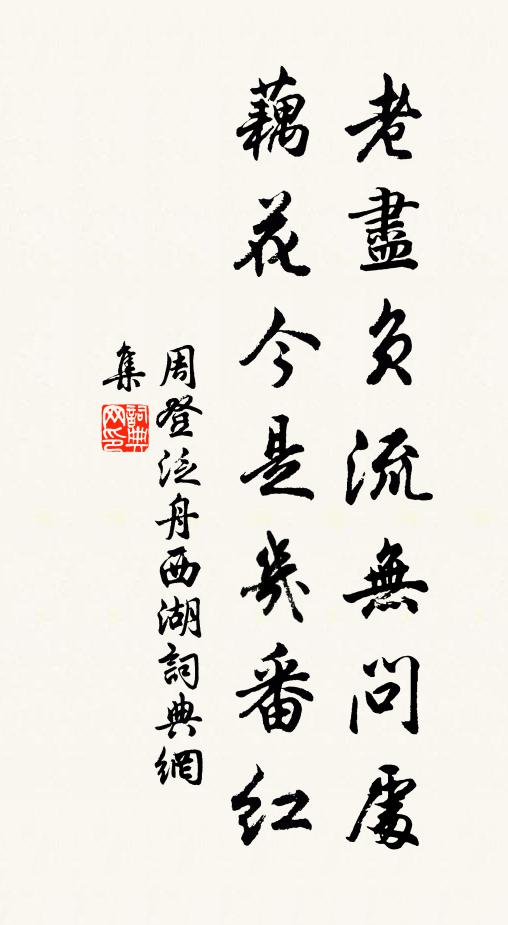 老盡交流無問處
藕花今是幾番紅
周登泛舟西湖詞典網
集
詞典
网印